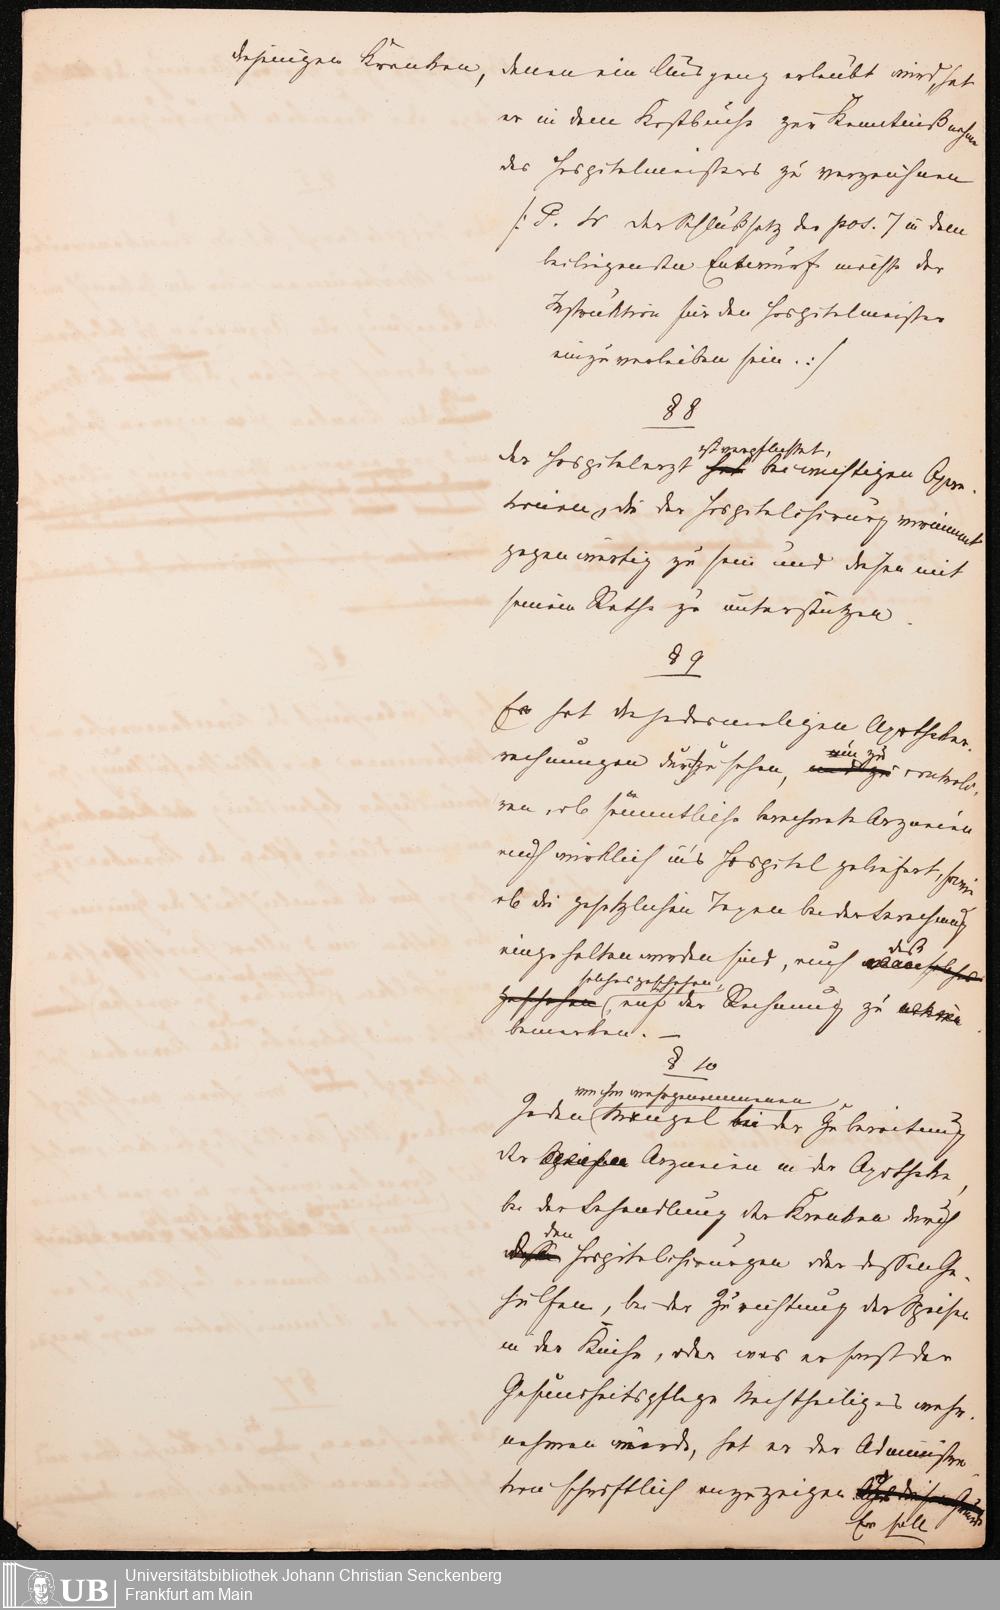 diejenigen Kranken, denen ein Ausgang erlaubt wird, hat
er in dem Kostbuche zur Kenntnißnahme
des Hospitalmeisters zu verzeichnen
/: P. M. der Schlußsatz der pos. 7 in dem
beiliegenden Entwurf wäre der
Instruktion für den Hospitalmeister
einzuverleiben sein. :/
§ 8
ist verpflichtet,
der Hospitalarzt hat bei wichtigen Opera-
tionen, die der Hospitalchirurg vornimmt
gegenwärtig zu sein und diesen mit
seinem Rathe zu unterstützen.
§ 9
Er hat die jedesmaligen Apotheker-
rechnungen durchzusehen, und zu controli-
ren, ob sämmtliche berechnete Arzneien
auch wirklich in's Hospital geliefert, sowie
ob die gesetzlichen Taxen bei der Berechnung
eingehalten worden sind, auch
daß
solches geschehen,
geschehen, auf der Rechnung zu
bemerken. —
§ 10
von ihm wahrgenommenen
Jeden Mangel bei der Zubereitung
der Speisen Arzneien in der Apotheke,
bei der Behandlung der Kranken durch
den
Hospitalchirurgen oder dessen Ge-
hülfen, bei der Zurichtung der Speisen
in der Küche, oder was er sonst der
Gesundheitspflege Nachtheiliges wahr-
nehmen würde, hat er der Administra-
tion schriftlich anzuzeigen
Er soll
UB
Universitätsbibliothek Johann Christian Senckenberg
Frankfurt am Main